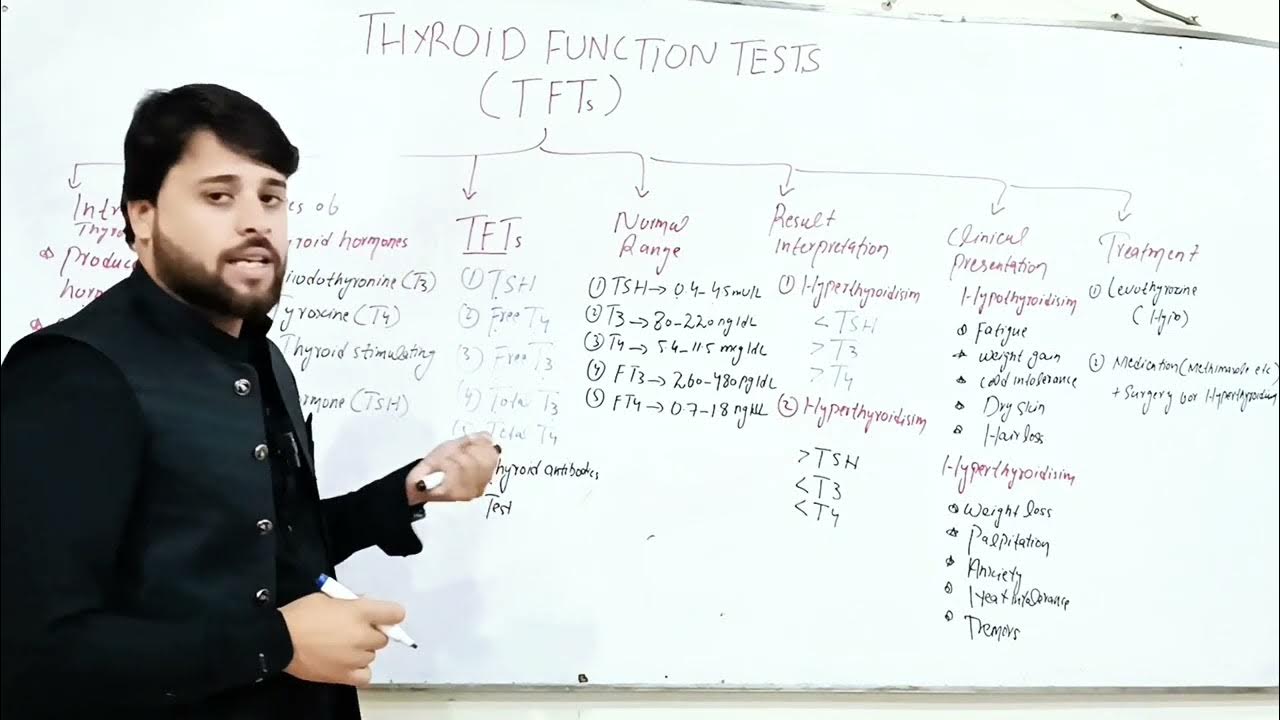 THYROID FUNCTION TESTS
(TFTs)
Intr
Thyro
Produc
horm
es ob
roid hormones
iiodothyronine (T3)
Tyroxine (T4)
Thyroid stimulating
rmone (TSH)
TFTs
(1) TSH
(2) Free T4
(3) Free T3
(4) Total T3
(5) Total T4
hyroid antibodies
Test
Normal
Range
(1) TSH → 0.4-4.5 mu/L
(2) T3 → 80-220 ng/dL
(3) T4 → 5.4-11.5 mcg/dL
(4) FT3 → 260-480 pg/dL
(5) FT4 → 0.7-1.8 ng/dL
Result
Interpretation
(1) Hyperthyroidisim
< TSH
> T3
> T4
(2) Hyperthyroidisim
> TSH
< T3
< T4
Clinical
Presentation
Hypothyroidisim
Fatigue
weight gain
cold intolerance
Dry skin
Hair loss
Hyperthyroidisim
Weight loss
Palpitation
Anxiety
Heat intolerance
Tremors
Treatment
(1) Levothyroxine
(Hypo)
(2) Medication (Methimazole etc)
+ Surgery for Hyperthyroidism